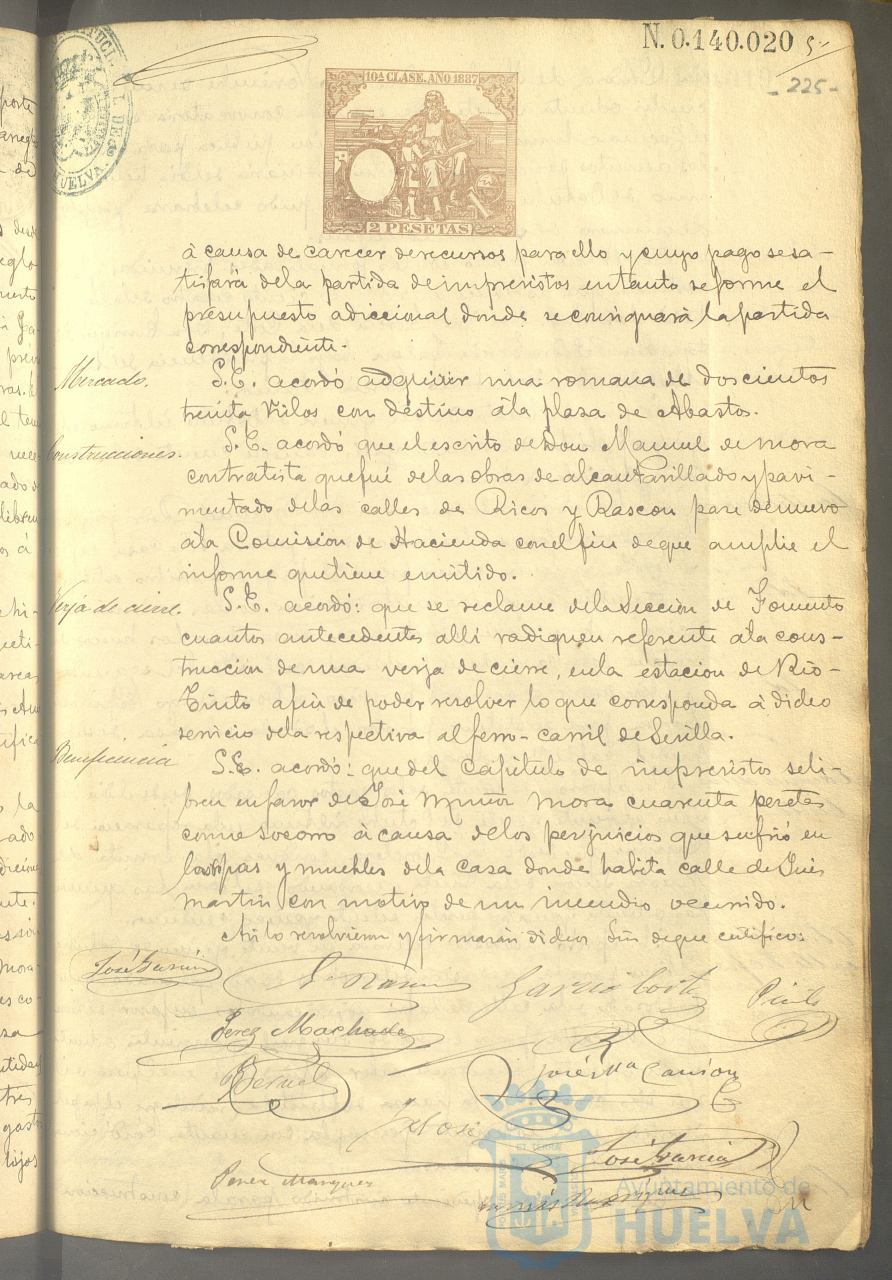 N. 0.140.020
225
10ª CLASE. AÑO 1887
2 PESETAS
HUELVA
à causa de carecer de recursos para ello y cuyo pago se sa-
tisfará dela partida de imprevistos en tanto se forme el
presupuesto adiccional donde se consignará la partida
correspondiente.
Mercado.
S.E. acordó adquirir una romana de doscientos
treinta Kilos con destino ála plaza de Abastos.
Construcciones.
S.E. acordó que el escrito de Don Manuel de Mora
contratista que fué delas obras de alcantarillado y pavi-
mentado delas calles de Ricos y Rascon pase denuevo
ála Comision de Hacienda con el fin deque amplie el
informe que tiene emitido.
Verja de cierre.
S.E. acordó: que se reclame dela Seccion de Fomento
cuantos antecedentes alli radiquen referente ála cons-
truccion de una verja de cierre, enla estacion de Rio-
Tinto afin de poder resolver lo que corresponda á dicho
servicio dela respectiva al ferro-carril de Sevilla.
Beneficencia
S.E. acordó: que del Capitulo de imprevistos se li-
bren en favor de José Muñoz Mora cuarenta pesetas
como Socorro á causa delos perjuicios que sufrió en
las ropas y muebles dela casa donde habita calle de
Martin con motivo de un incendio ocurrido.
Asi lo resolvieron y firmarán dichos Sres deque certifico:
José García
Garcia Cortes
Perez Machado
Bernal
José Mª Cansino
José García
Perez Marquez
Ayuntamiento de
HUELVA